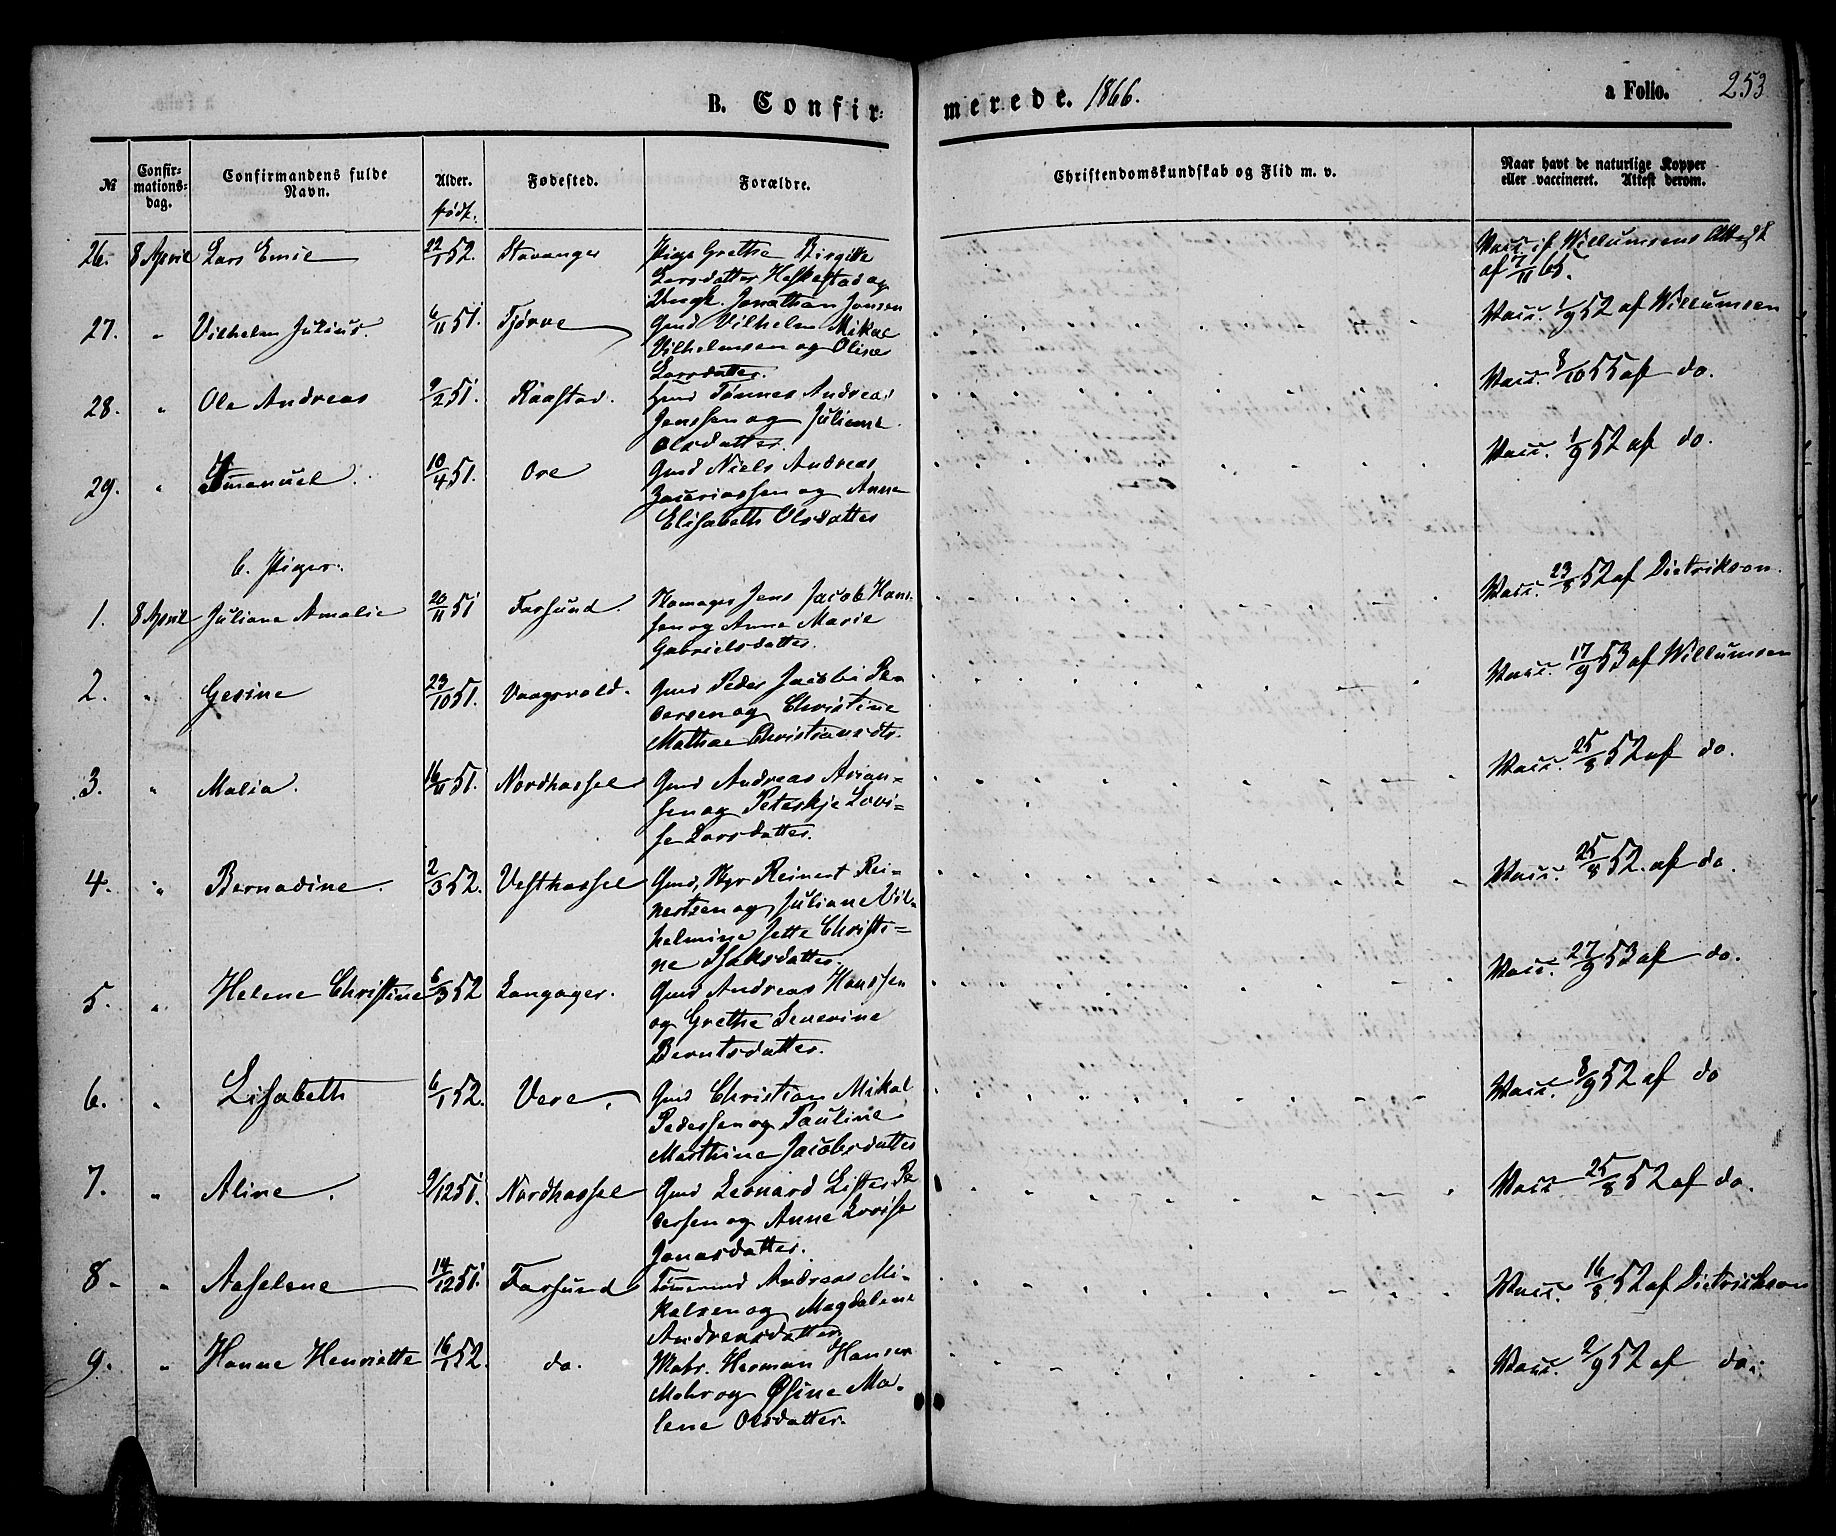 B. Confirmerede. 1866.
a Folio. 253
№
Confirmationsdag.
Confirmandens fulde Navn.
Alder.
født.
Fødested.
Forældre.
Christendomskundskab og Flid m. v.
Naar havt de naturlige Kopper eller vaccineret. Attest derom.
26. 8 April Lars Emil 22/1 52. Stavanger Pige Grethe Birgitte
Larsdatter Heskestad og
Ungk. Jonathan Jonsen
Vacc. if Willumsens Attest
af 7/11 65.
27. " Vilhelm Julius. 6/11 51. Tjørve Gmd Vilhelm Mikal
Vilhelmsen og Oline
Larsdatter.
Vacc. 1/9 52 af Willumsen
28. " Ole Andreas 9/2 51. Raastad. Tønnes Andreas
Jenssen og Juliane
Olsdatter.
Vacc. 8/10 55 af do.
29. " Emanuel. 10/4 51. Ore Gmd Niels Andreas
Zacariassen og Anne
Elisabeth Olsdatter
Vacc. 1/9 52 af do.
b. Piger.
1. 8 April Juliane Amalie 20/11 51 Farsund. Jens Jacob Han-
sen og Anne Marie
Gabrielsdatter.
Vacc. 23/8 52 af Dietrikson.
2. " Gesine 23/10 51. Vaagsvold. Gmd Peder Jacobi Pe-
dersen og Christine
Mathae Christiansdtr.
Vacc. 17/9 53 af Willumsen
3. " Malia. 16/11 51. Nordhassel Gmd Andreas Arian-
sen og Peterikje Lovi-
se Larsdatter.
Vacc. 25/8 52 af do.
4. " Bernadine. 2/3 52. Vesthassel Gmd, Reinert Rei-
nertsen og Juliane Vil-
helmine Jette Christi-
ne Isaksdatter.
Vacc. 25/8 52. af do.
5. " Helene Christine 6/3 52 Langager. Gmd Andreas Hanssen
og Grethe Severine
Berntsdatter.
Vacc. 27/9 53 af do.
6. " Lisabeth 6/1 52. Vere. Gmd Christian Mikal
Pedersen og Pauline
Marthine Jacobsdatter
Vacc. 8/9 52 af do
7. " Aline. 9/12 51. Nordhassel Gmd Leonard Lister Pe-
dersen og Anne Lovise
Jonasdatter.
Vacc 25/8 52 af do.
8. " Aaselene 14/12 51. Farsund Tømmermd Andreas Mi-
kalsen og Magdalene
Andreasdatter.
Vacc. 16/8 52 af Dietrichson
9. " Hanne Henriette 16/1 52. do. Matr. Herman Hansen
Mohr og Osine Ma-
lene Olsdatter.
Vacc. 2/9 52 af do.